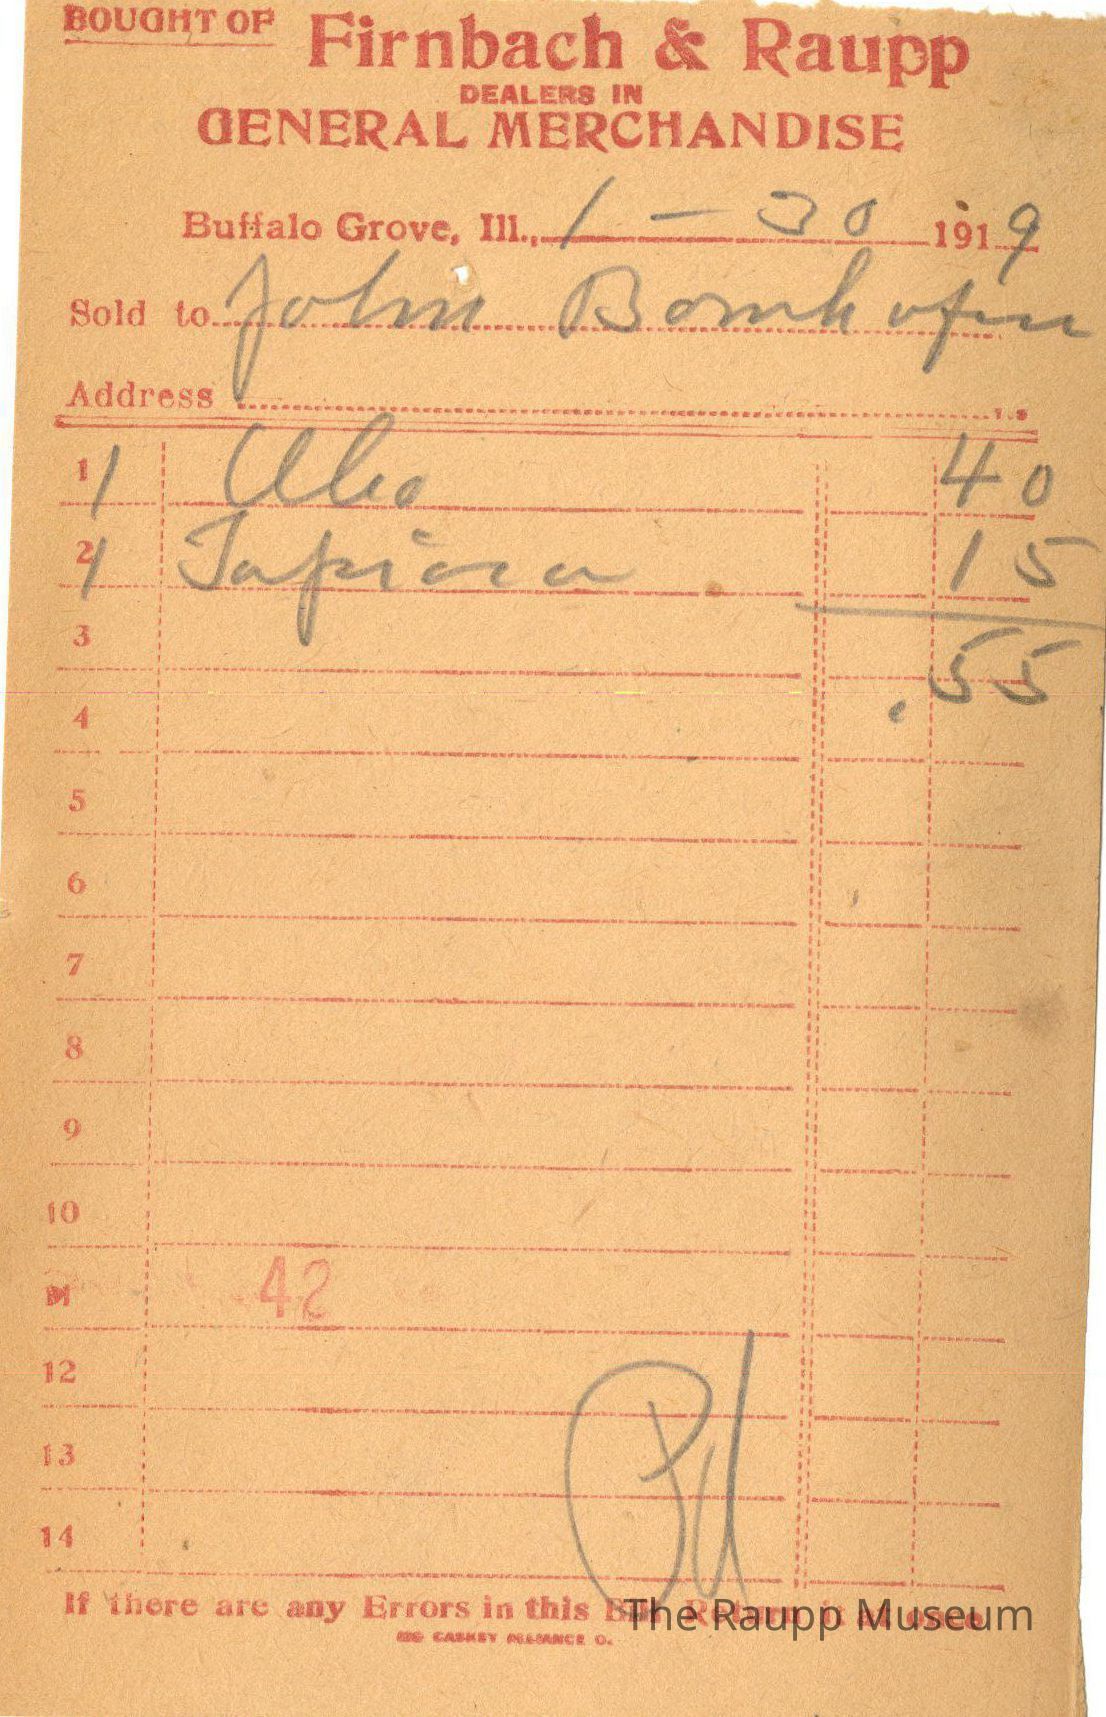 BOUGHT OF Firnbach & Raupp
DEALERS IN
GENERAL MERCHANDISE
Buffalo Grove, Ill., 1 - 30 1919
Sold to John
Address
1 1 40
2 1 Tapioca 15
3 .55
4
5
6
7
8
9
10
11 42
12
13 Pd
14
If there are any Errors in this Bill Return it at once
The Raupp Museum